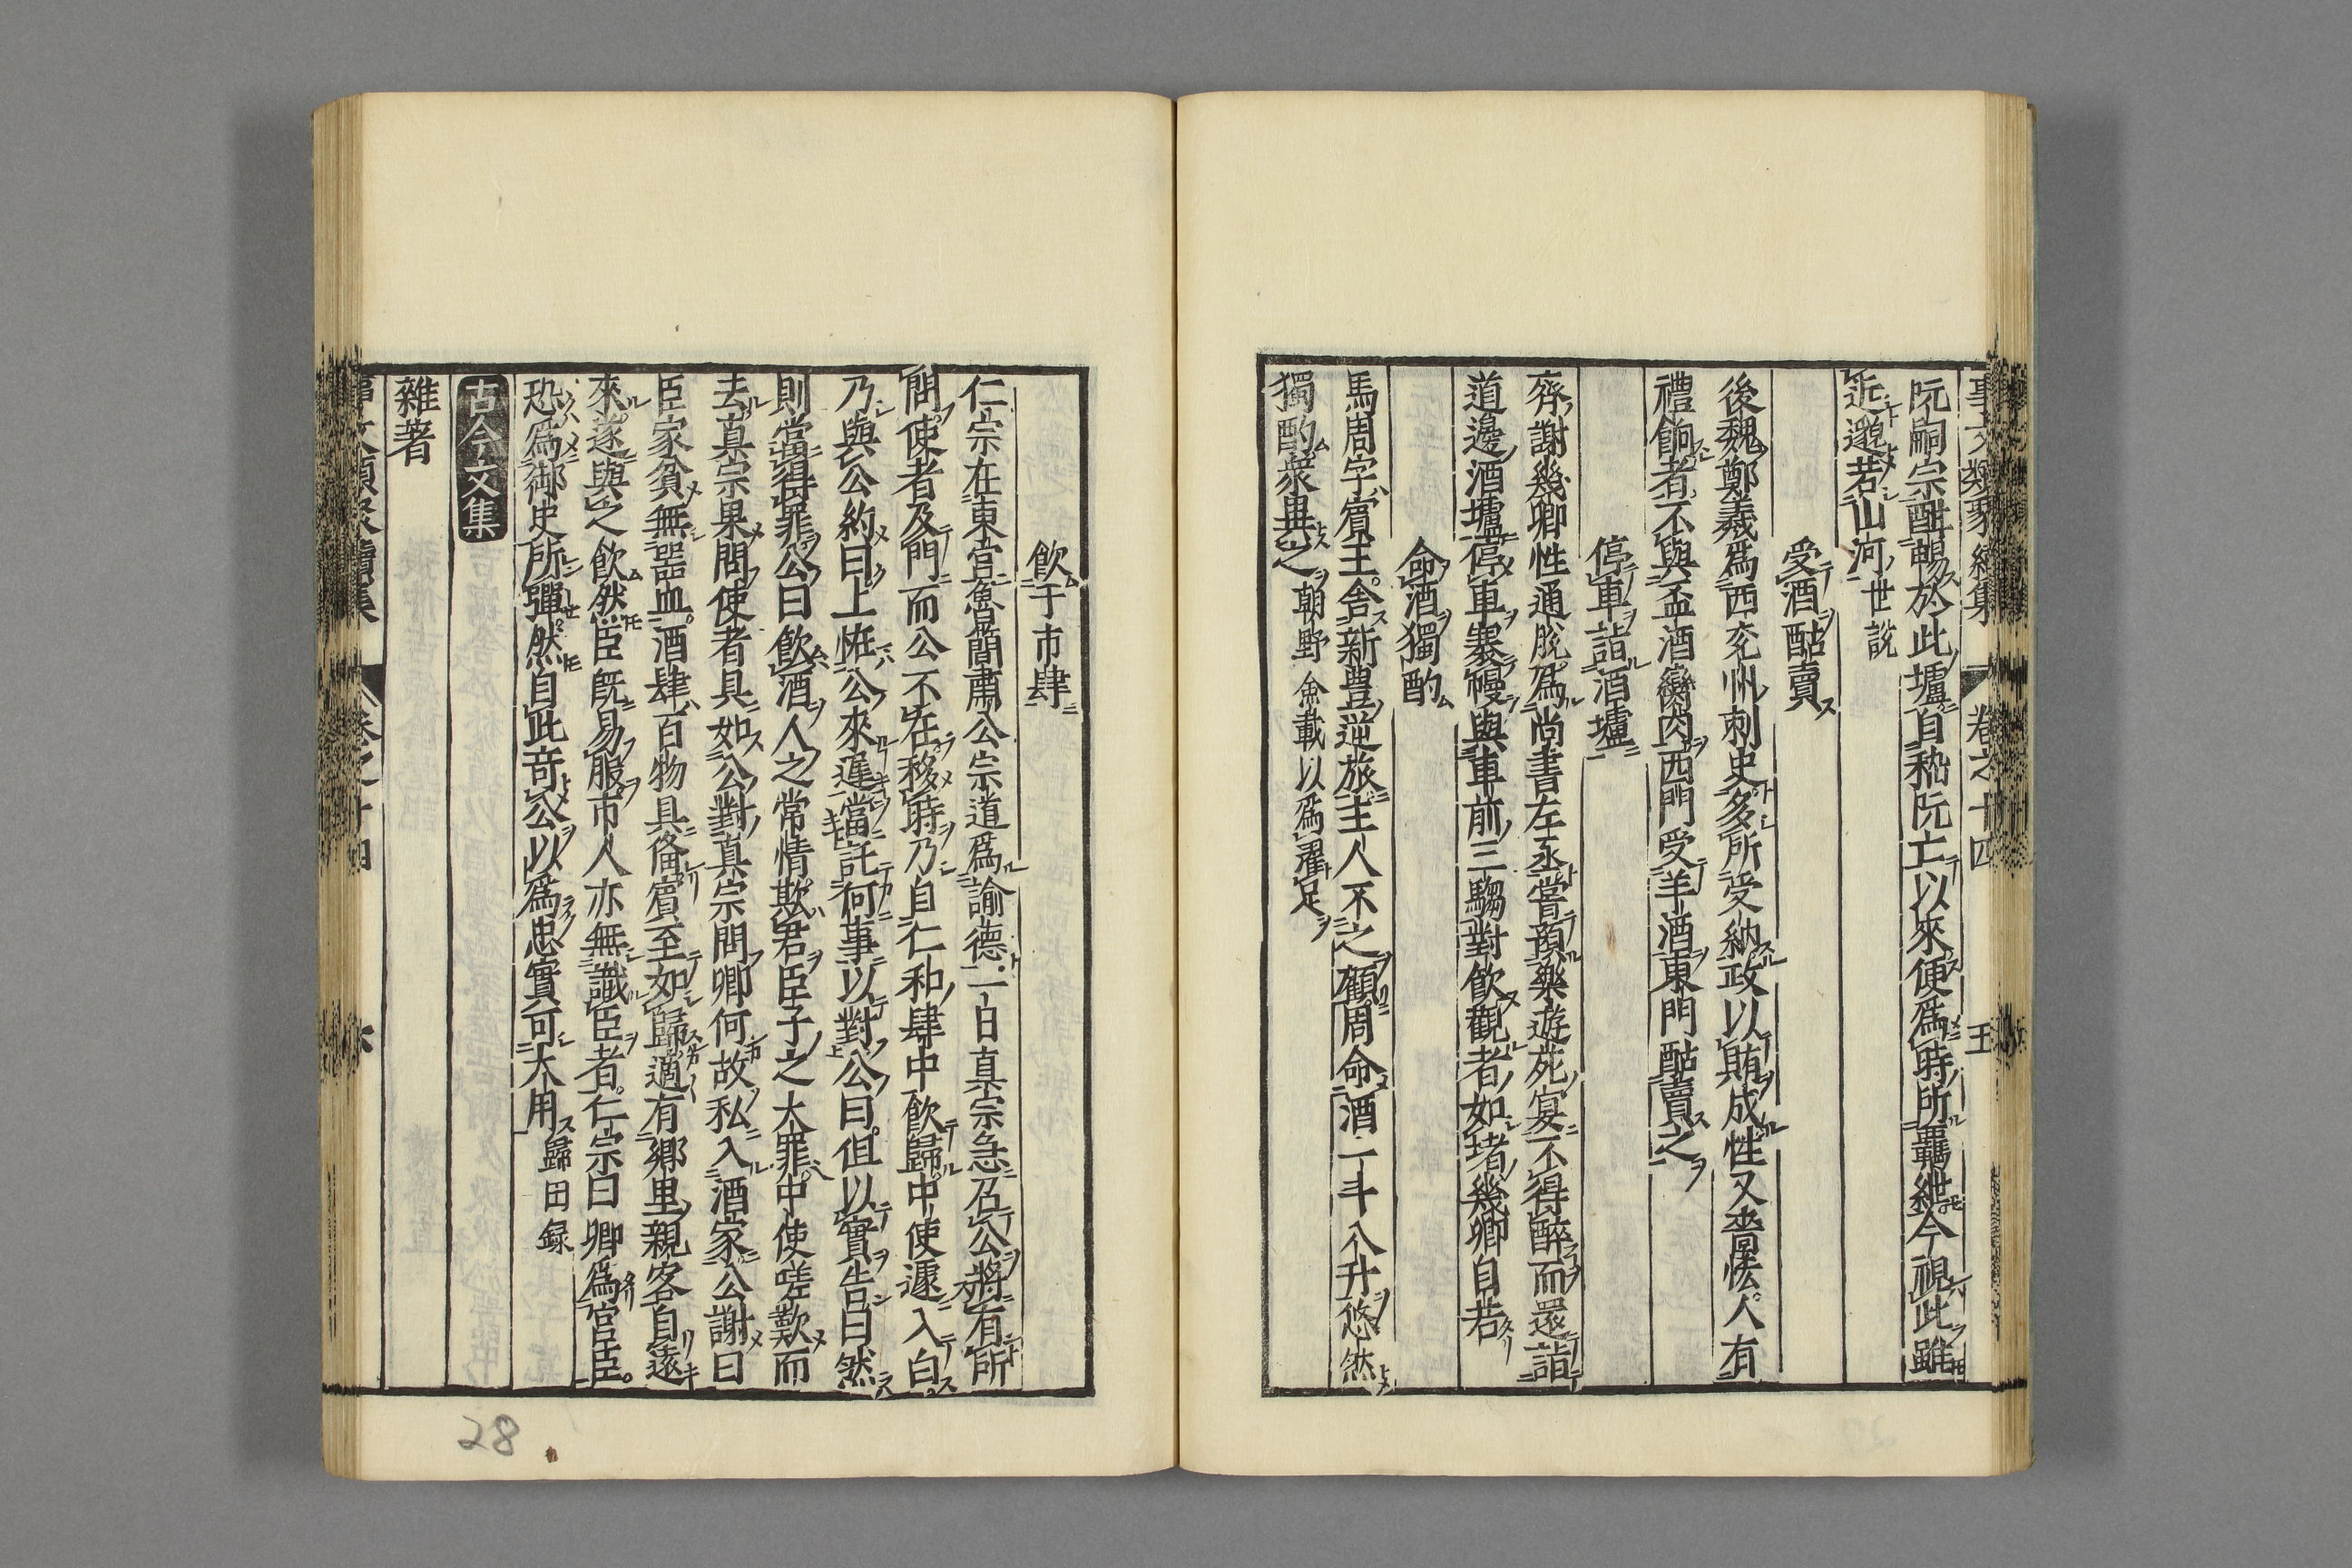 事文類聚續集 卷之十四 五
阮嗣宗酣暢於此壚自嵇阮亡以來便爲時所羈紲今視此雖
近邈若山河世說
受酒酤賣
後魏鄭羲爲西兗州刺史多所受納政以賄成性又嗇恡人有
禮餉者不與盃酒臠肉西門受羊酒東門酤賣之
停車詣酒壚
齊謝幾卿性通脫爲尚書左丞嘗預樂遊苑宴不得醉而還詣
道邊酒壚停車褰幔與車前三騶對飲觀者如堵幾卿自若
命酒獨酌
馬周字賓王舍新豊逆旅主人不之顧周命酒一斗八升悠然
獨酌衆異之朝野僉載以爲濯足
飲于市肆
仁宗在東宮魯簡肅公宗道爲諭德一日真宗急召公將有所
問使者及門而公不在移時乃自仁和肆中飲歸中使遽入白
乃與公約曰上恠公來遲當託何事以對公曰但以實告曰然
則當得罪公曰飲酒人之常情欺君臣子之大罪中使嗟歎而
去真宗果問使者具如公對真宗問卿何故私入酒家公謝曰
臣家貧無噐皿酒肆百物具俻賓至如歸適有鄉里親客自遠
來遂與之飲然臣既易服市人亦無識臣者仁宗曰卿爲官臣
恐爲御史所彈然自此奇公以爲忠實可大用歸田録
古今文集
雜著
事文類聚續集 卷之十四 六
28